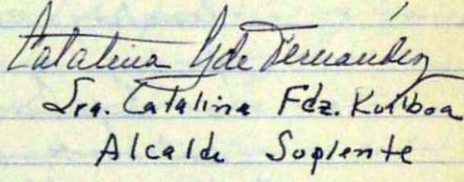 Catalina G de Fernández
Sra. Catalina Fdz. Kuilboa
Alcalde Suplente